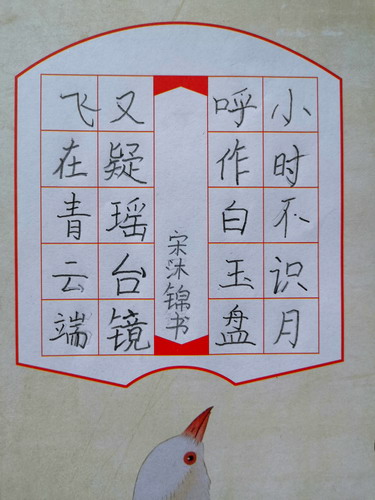 小时不识月
呼作白玉盘
又疑瑶台镜
飞在青云端
宋沐锦书